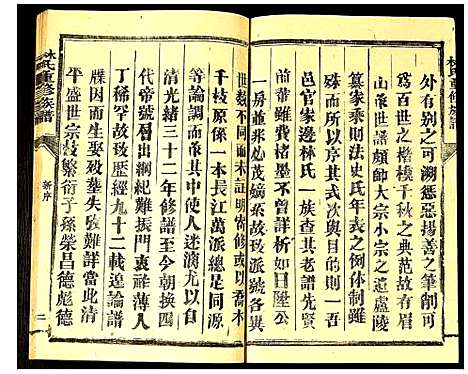 林氏重修族譜
外有别之可溯惩惡揚善之筆削可
為百世之楷模千秋之典范故有眉
山帝世譜顏師大宗小宗之道盧陵
纂家乘則法史氏年表之例体制雖
殊而所以序其式次者則一而吾
邑官家邊林氏一族查其老譜先賢
前輩雖楮墨不曾詳析如日陞公
一房並米必茂嬪系故玫派號各異
世数不同而未証明寄修或以喬木
千枝原係一本長江萬派總是同源
等論調而承其進演尤以自
清光緒三十二年修譜至今朝换四
代帝號出綱紀難振門衰祚薄人
丁稀罕故玫歷經九十二載遑論譜
牒因而生娶殁墓失攷難詳當此清
平盛世宗枝繁衍子孫榮昌德彪德
林氏重修族譜
新序
二